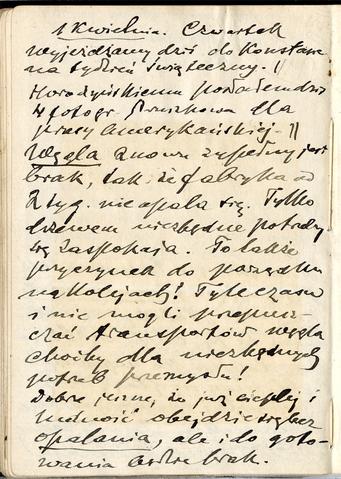 1 Kwietnia. Czwartek
Wyjeżdżamy dziś do Konstan-
na tydzień świąteczny. ||
Horodyńskiemu podałem dziś
4 fotogr. Pruszkowa dla
prasy amerykańskiej. ||
Węgla znowu zupełny jest
brak, tak że fabryka od
2 tyg. nie opala się. Tylko
drzewem niezbędne potrzeby
się zaspokaja. To także
przyczynek do porządku
na kolejach! Tyle czasu
i nie mogli przepusz-
czać transportów węgla
choćby dla niezbędnych
potrzeb przemysłu!
Dobrze jeszcze, że już cieplej i
można obejdzie się bez
opalania, ale i do goto-
wania będzie brak.